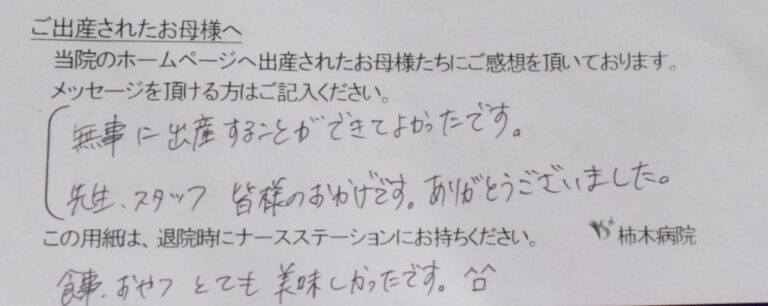 ご出産されたお母様へ
当院のホームページへ出産されたお母様たちにご感想を頂いております。
メッセージを頂ける方はご記入ください。
無事に出産することができてよかったです。
先生、スタッフ 皆様のおかげです。ありがとうございました。
この用紙は、退院時にナースステーションにお持ちください。 柿木病院
食事、おやつ とても 美味しかったです。^□^